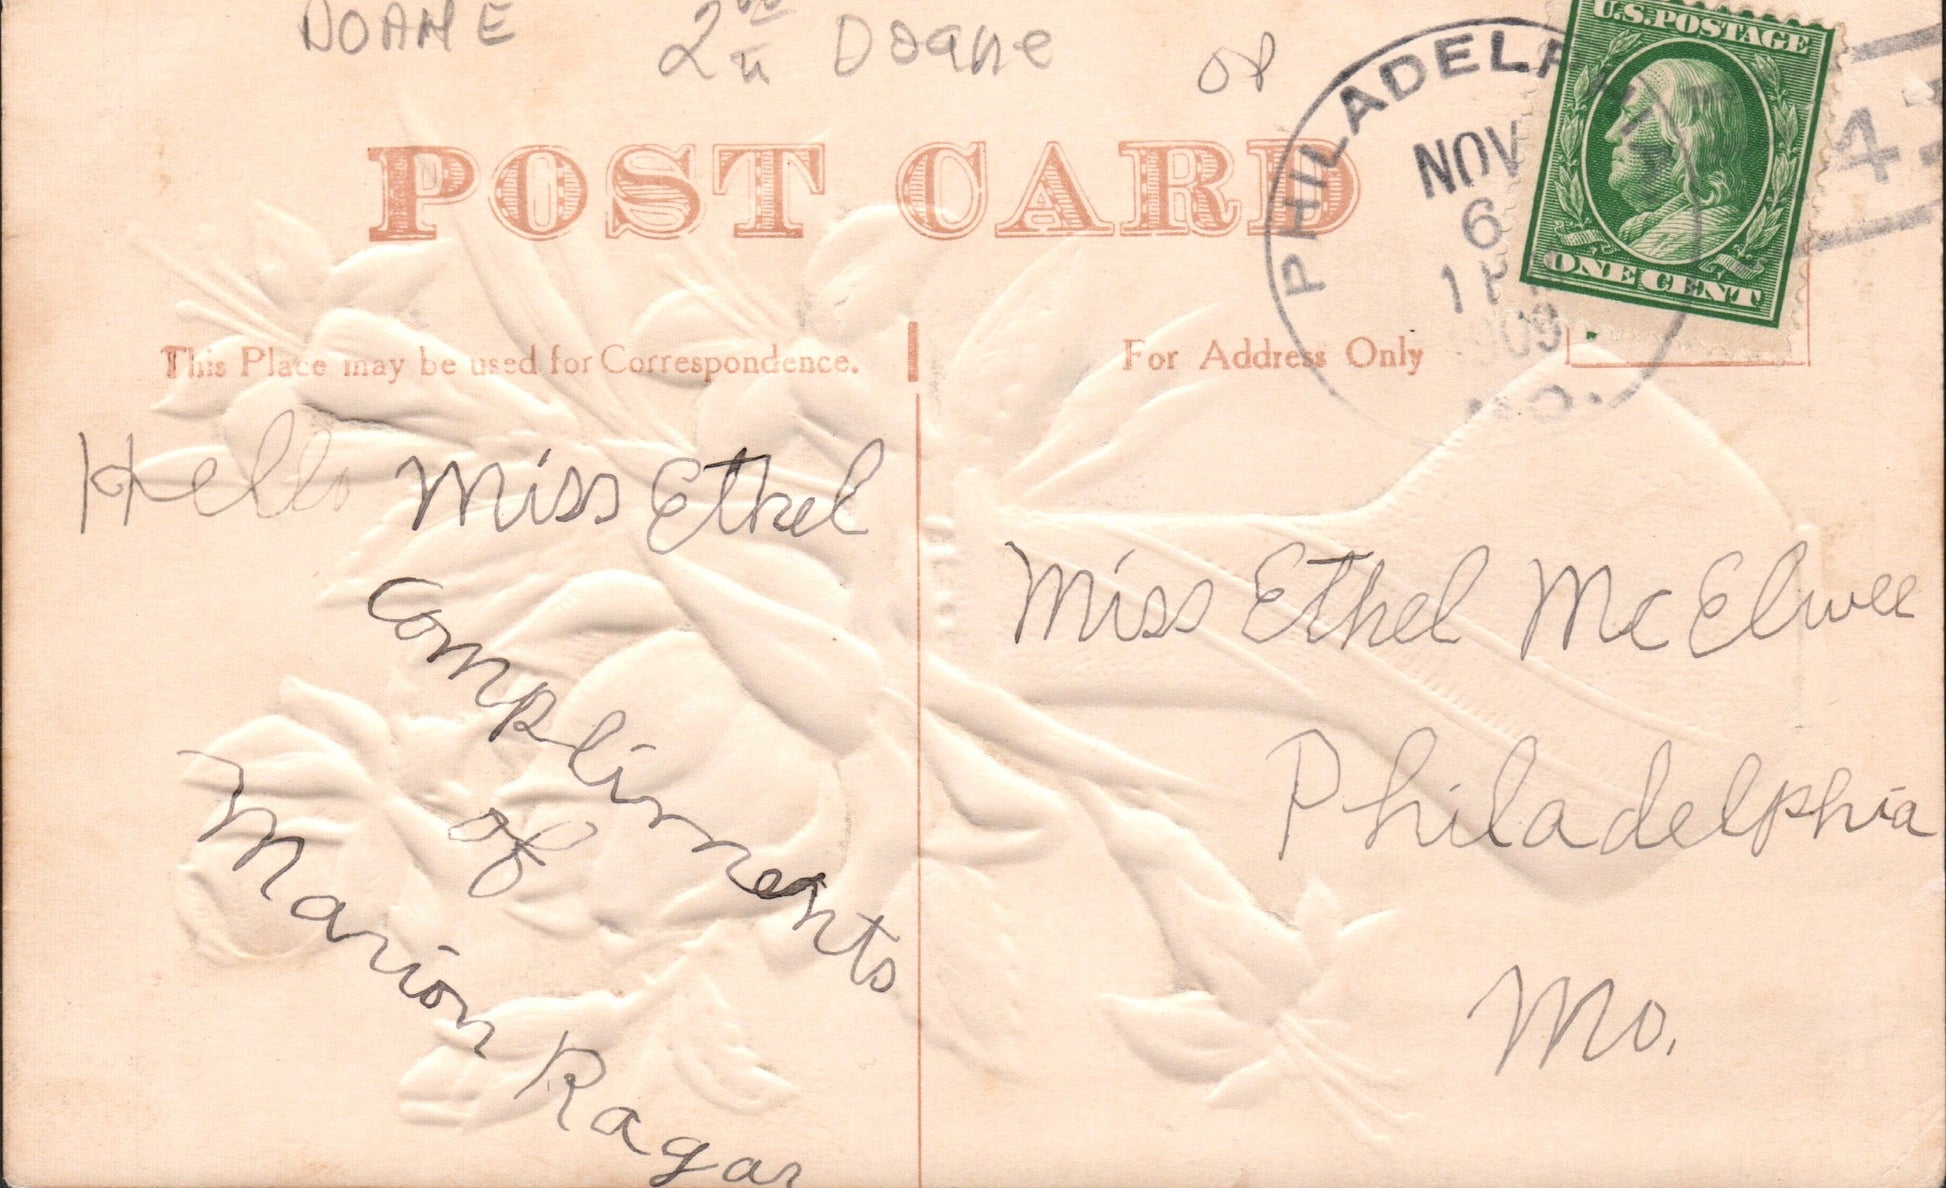 DOANE 2 Doane
POST CARD
PHILADELPHIA
NOV
6
1 P
MO.
U.S.POSTAGE
ONE CENT
4
This Place may be used for Correspondence.
For Address Only
Hello Miss Ethel
Compliments
of
Marion Ragar
Miss Ethel McElwee
Philadelphia
Mo.